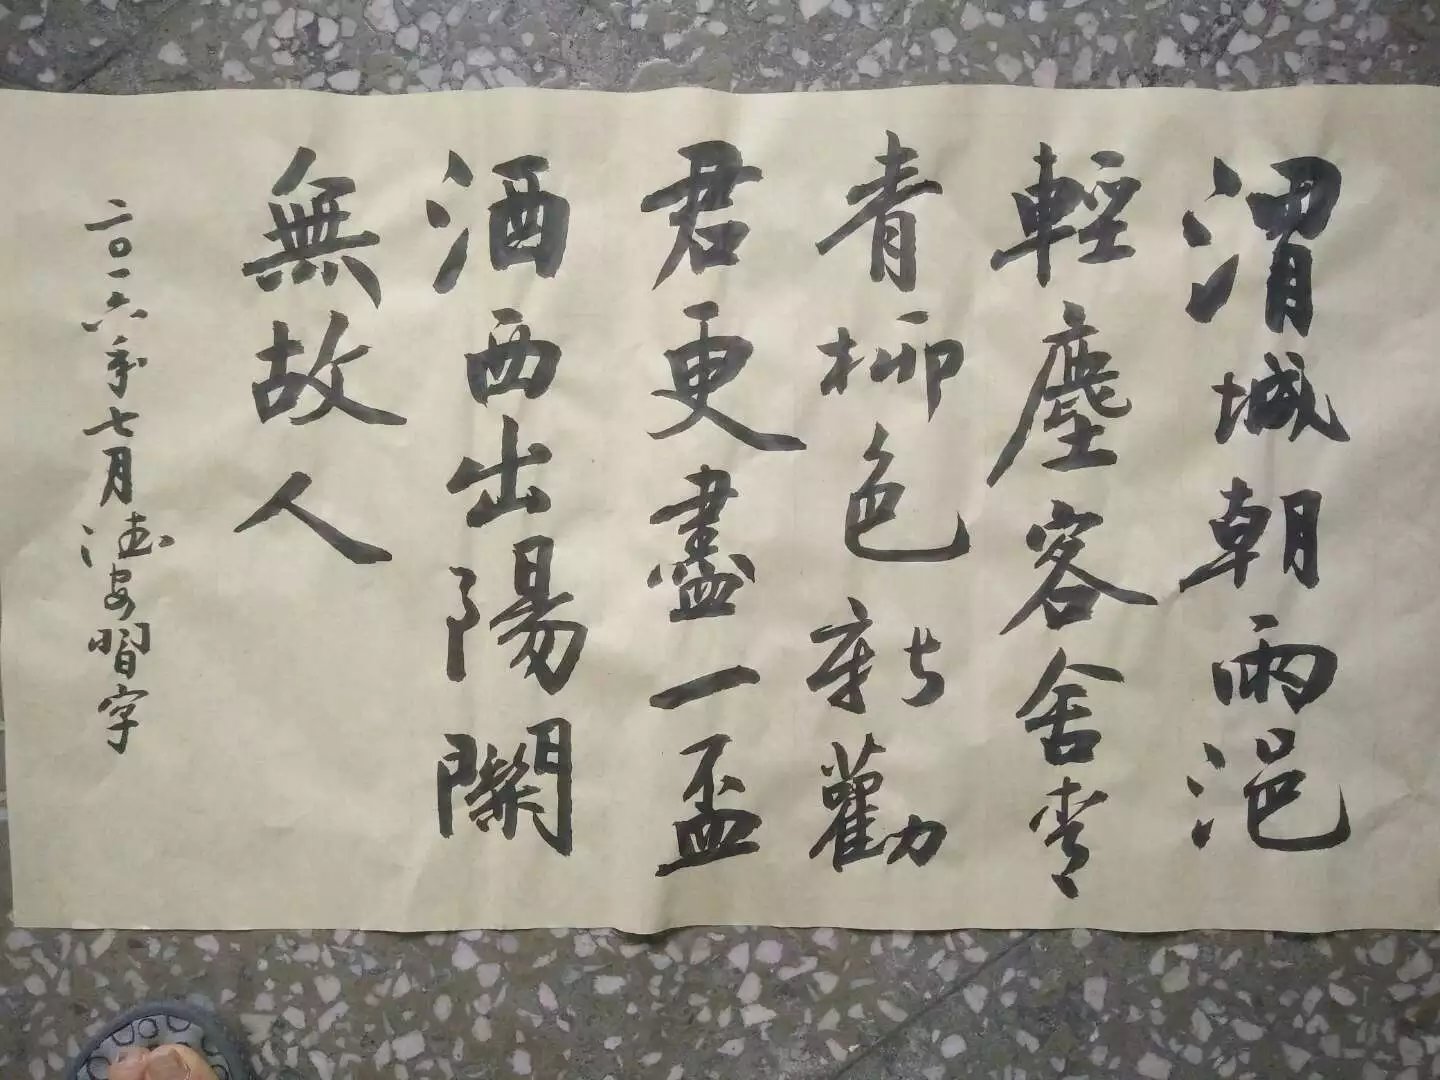 渭城朝雨浥
輕塵客舍青
青柳色新勸
君更盡一盃
酒西出陽關
無故人
二〇一六年七月建安習字